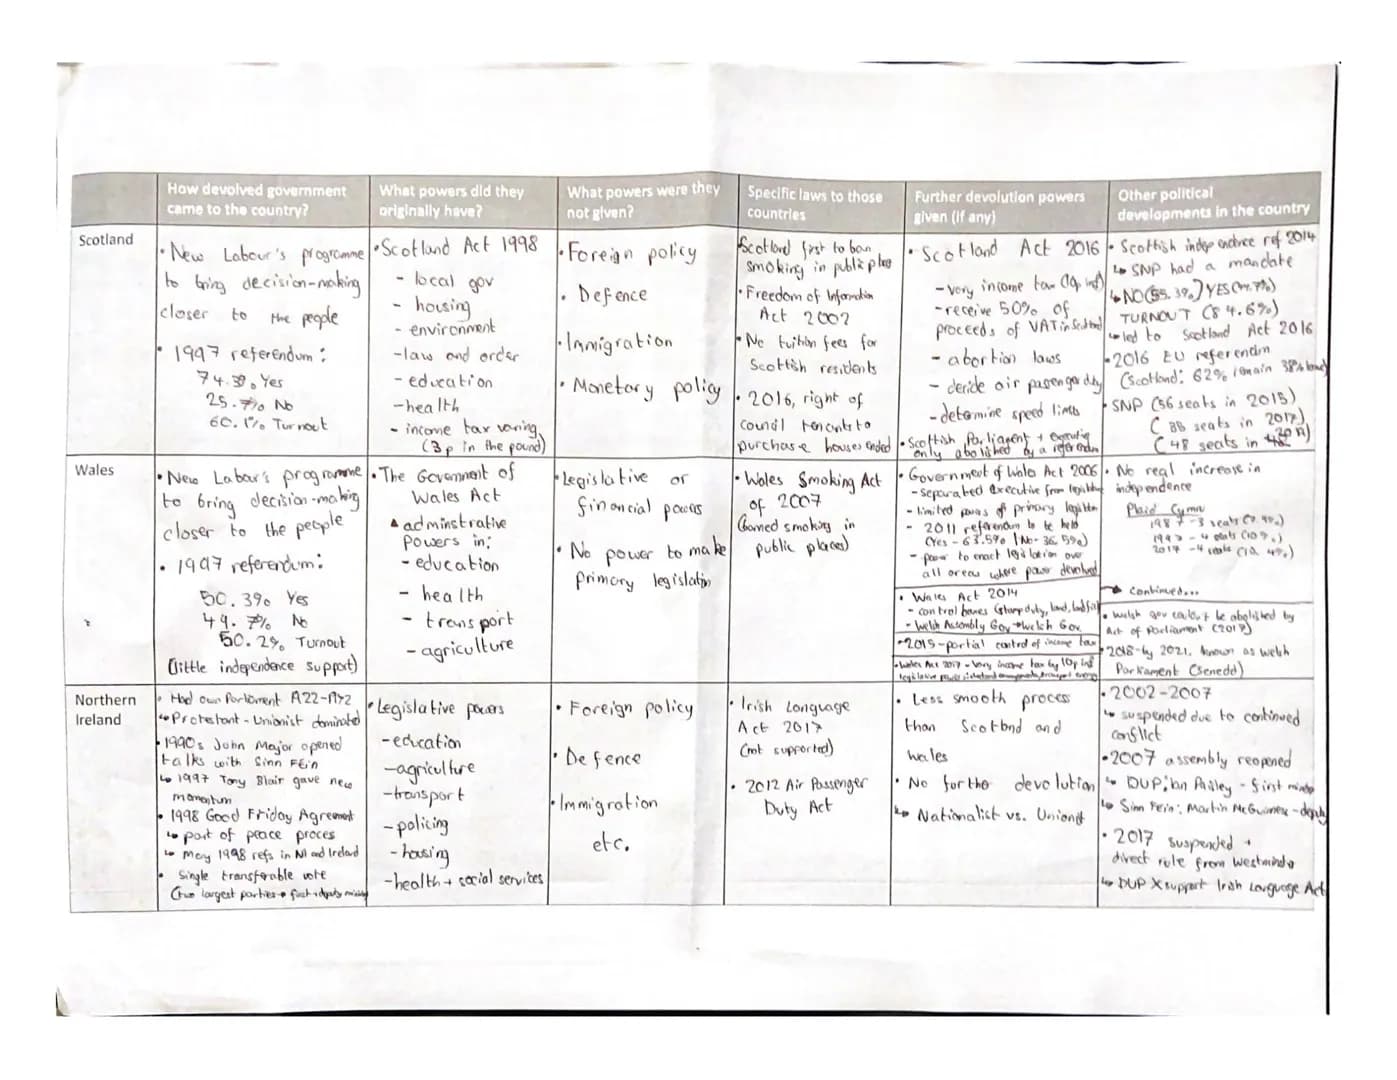 How devolved government
came to the country?
What powers did they
originally have?
What powers were they
not given?
Specific laws to those
countries
Further devolution powers
given (if any)
Other political
developments in the country
Scotland
• New Labour's programme
to bring decision-making
closer to the people
• 1997 referendum:
74.3% Yes
25.7% No
60.1% Turnout
• Scotland Act 1998
- local gov
- housing
- environment
- law and order
- education
- health
- income tax varing
(3p in the pound)
• Foreign policy
• Defence
• Immigration
• Monetary policy
Scotland first to ban
smoking in public places
• Freedom of Information
Act 2002
• No tuition fees for
Scottish residents
• 2016, right of
council tenants to
purchase houses ended
• Scotland Act 2016
- vary income tax (10p in £)
- receive 50% of
proceeds of VAT in Scotland
- abortion laws
- decide air passenger duty
- determine speed limits
• Scottish Parliament + executive
only abolished by a referendum
• Scottish independence ref 2014
↳ SNP had a mandate
↳ NO (55.3%) YES (44.7%)
TURNOUT (84.6%)
↳ led to Scotland Act 2016
• 2016 EU referendm
(Scotland: 62% remain 38% leave)
• SNP (56 seats in 2015)
(35 seats in 2017)
(48 seats in 2019)
Wales
• New Labour's programme
to bring decision-making
closer to the people
• 1997 referendum:
50.3% Yes
49.7% No
50.2% Turnout
(little independence support)
• The Government of
Wales Act
adminstrative
powers in:
- education
- health
- transport
- agriculture
• Legislative or
financial powers
• No power to make
primary legislation
• Wales Smoking Act
of 2007
(banned smoking in
public places)
• Government of Wales Act 2006
- separated executive from legislature
- limited powers of primary legislation
- 2011 referendum to be held
(Yes - 63.5% | No - 36.5%)
- power to enact legislation over
all areas where power devolved
• Wales Act 2014
- control taxes (stamp duty, land, landfill)
- Welsh Assembly Gov → Welsh Gov
• 2015 - partial control of income tax
• Wales Act 2017 - vary income tax by 10p in £
• No real increase in
independence
Plaid Cymru
1987 - 3 seats (7.9%)
- 4 seats
2017 - 4 seats (10.4%)
→ Continued...
• Welsh gov couldn't be abolished by
Act of Parliament (2017)
• 2018 - by 2021, known as Welsh
Parliament (Senedd)
Northern
Ireland
• Had own Parliament 1922-1972
↳ Protestant - Unionist dominated
• 1990s John Major opened
talks with Sinn Fein
↳ 1997 Tony Blair gave new
momentum
• 1998 Good Friday Agreement
↳ part of peace proces
↳ May 1998 refs in NI and Ireland
• Single transferable vote
(two largest parties → first + deputy minister
• Legislative powers
- education
- agriculture
- transport
- policing
- housing
- health + social services
• Foreign policy
• Defence
• Immigration
etc.
• Irish Language
Act 2017
(not supported)
• 2012 Air Passenger
Duty Act
• Less smooth process
than Scotland and
Wales
• No further devolution
↳ Nationalist vs. Unionist
• 2002-2007
↳ suspended due to continued
conflict
• 2007 assembly reopened
↳ DUP: Ian Paisley - first minister
↳ Sinn Fein: Martin McGuiness - deputy
• 2017 suspended +
direct rule from Westminster
↳ DUP X support Irish Language Act